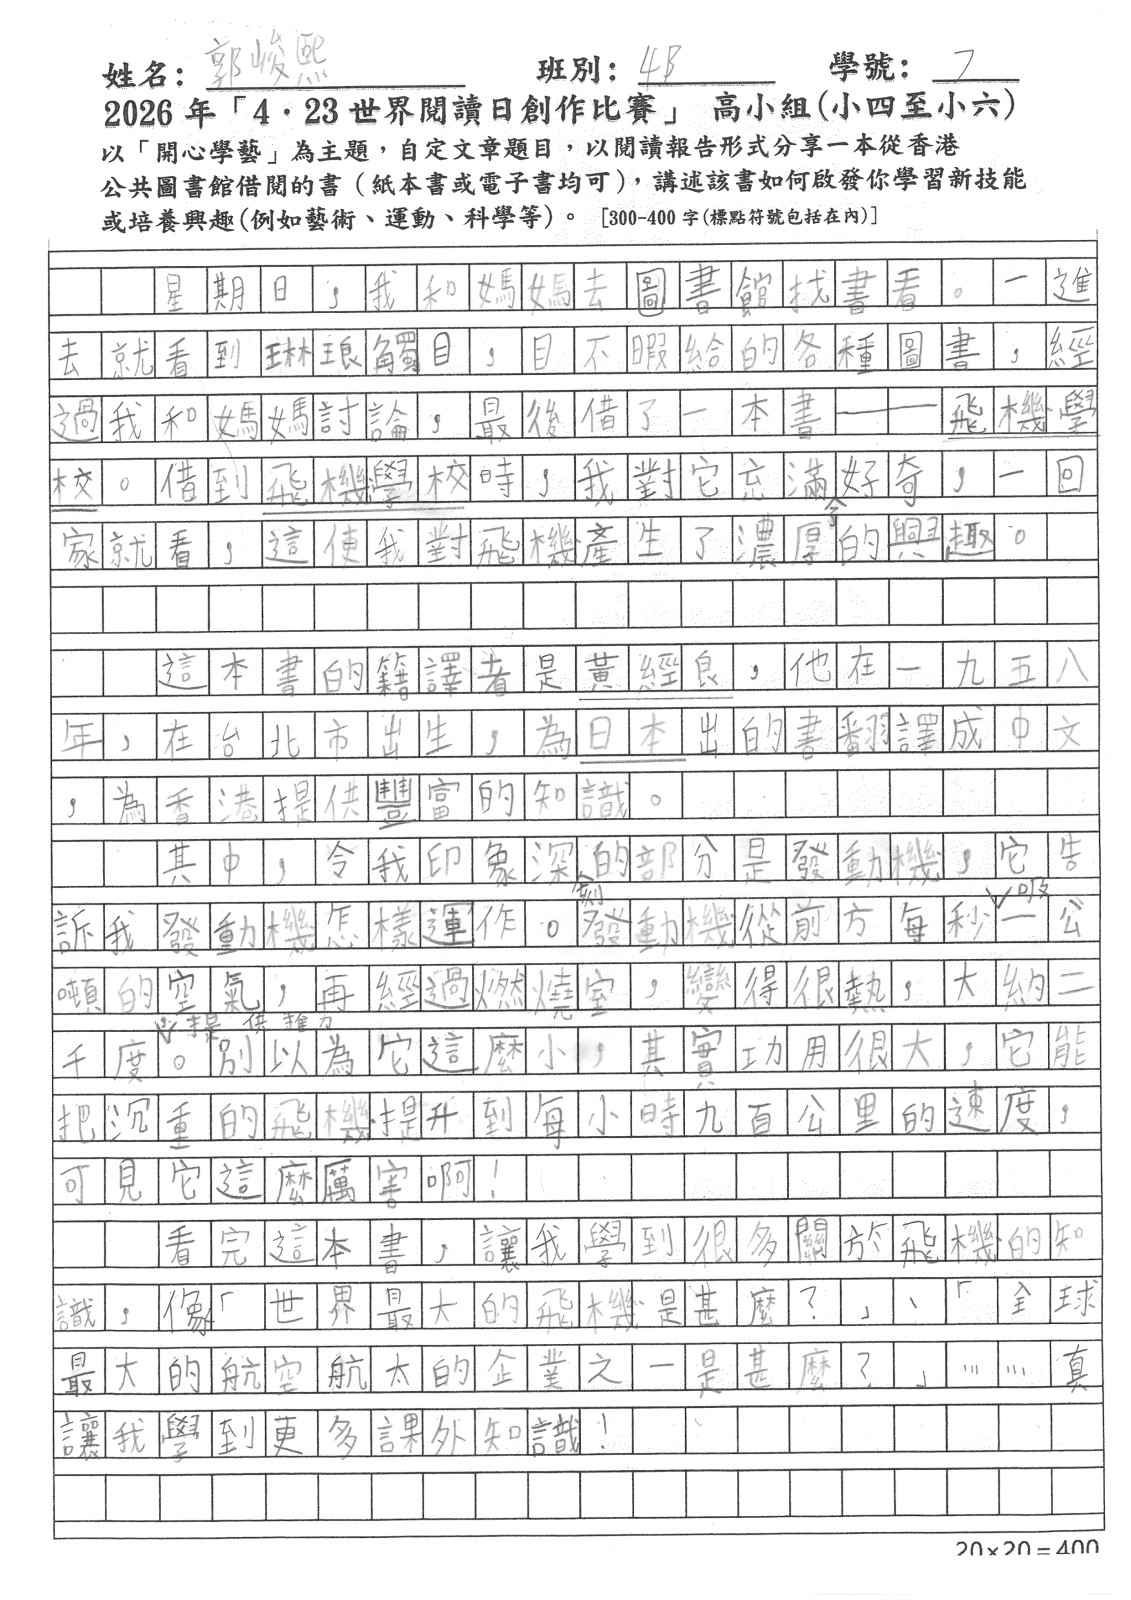 姓名：郭峻熙 班別：4B 學號：7
2026 年「4．23 世界閱讀日創作比賽」 高小組(小四至小六)
以「開心學藝」為主題，自定文章題目，以閱讀報告形式分享一本從香港
公共圖書館借閱的書（紙本書或電子書均可)，講述該書如何啟發你學習新技能
或培養興趣(例如藝術、運動、科學等)。 [300-400 字(標點符號包括在內)]
星期日，我和媽媽去圖書館找書看。一進
去就看到琳琅觸目，目不暇給的各種圖書，經
過我和媽媽討論，最後借了一本書——飛機學
校。借到飛機學校時，我對它充滿好奇，一回
家就看，這使我對飛機產生了濃厚的興趣。
這本書的籍譯者是黃經良，他在一九五八
年，在台北市出生，為日本出的書翻譯成中文
，為香港提供豐富的知識。
其中，令我印象深刻的部分是發動機，它告
訴我發動機怎樣運作。發動機從前方每秒吸一公
噸的空氣，再經過燃燒室，變得很熱，大約二
千度。提供推力別以為它這麼小，其實功用很大，它能
把沉重的飛機提升到每小時九百公里的速度，
可見它這麼厲害啊！
看完這本書，讓我學到很多關於飛機的知
識，像「世界最大的飛機是甚麼？」、「全球
最大的航空航太的企業之一是甚麼？」……真
讓我學到更多課外知識！
20×20=400